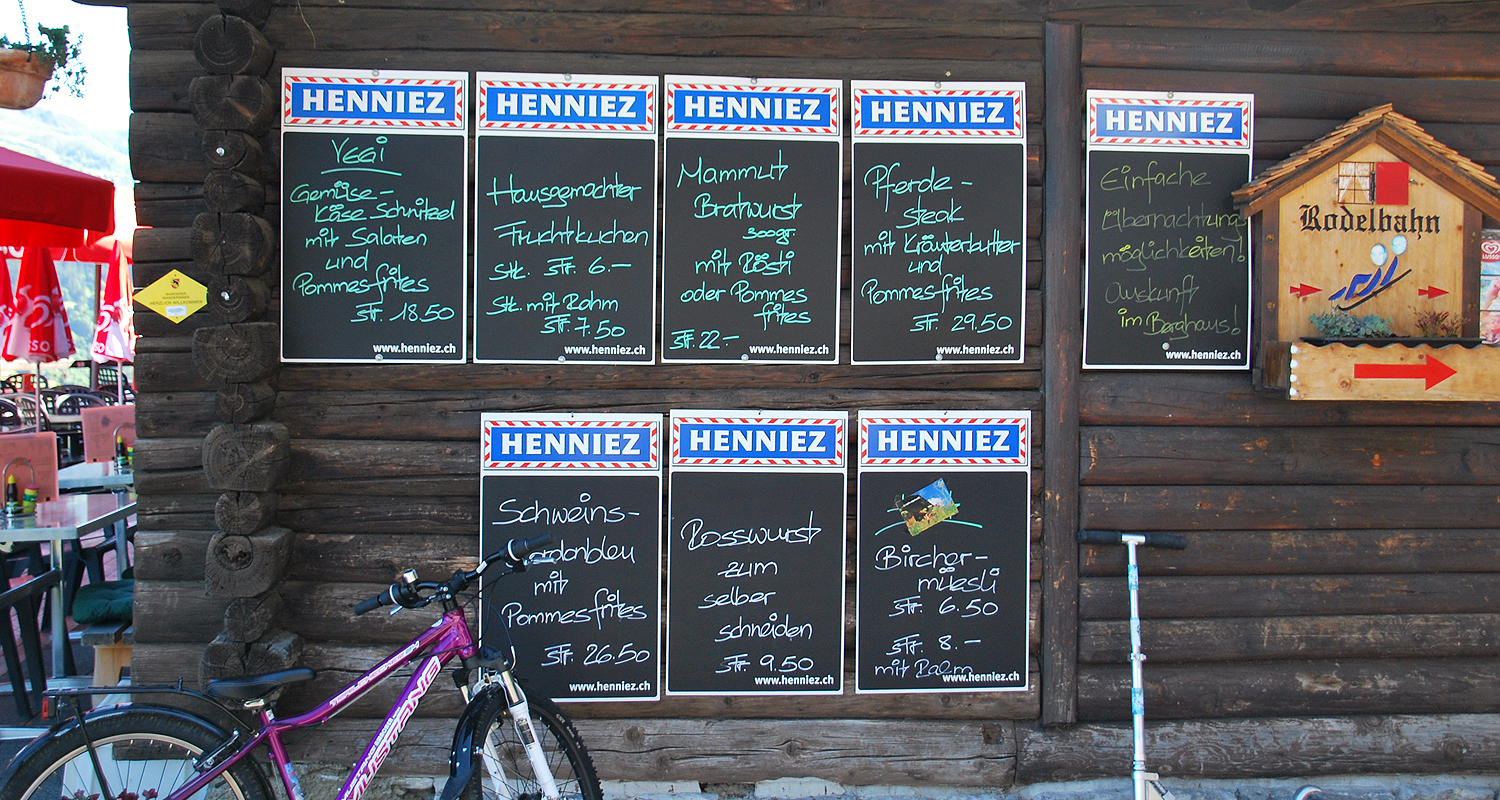 HENNIEZ
Vegi
Gemüse-
Käse Schnitzel
mit Salaten
und
Pommesfrites
sFr. 18.50
www.henniez.ch
HENNIEZ
Hausgemachter
Fruchtkuchen
Stk. sFr. 6.–
Stk. mit Rahm
sFr. 7.50
www.henniez.ch
HENNIEZ
Mammut
Bratwurst
300gr.
mit Rösti
oder Pommes
frites
sFr. 22.–
www.henniez.ch
HENNIEZ
Pferde-
steak
mit Kräuterbutter
und
Pommesfrites
sFr. 29.50
www.henniez.ch
HENNIEZ
Einfache
Übernachtung
möglichkeiten!
Auskunft
im Berghaus!
www.henniez.ch
Rodelbahn
HERZLICH WILLKOMMEN
HENNIEZ
Schweins-
cordonbleu
mit
Pommesfrites
sFr. 26.50
www.henniez.ch
HENNIEZ
Rosswurst
zum
selber
schneiden
sFr. 9.50
www.henniez.ch
HENNIEZ
Bircher-
müesli
sFr. 6.50
sFr. 8.–
mit Rahm
www.henniez.ch
MUSTANG